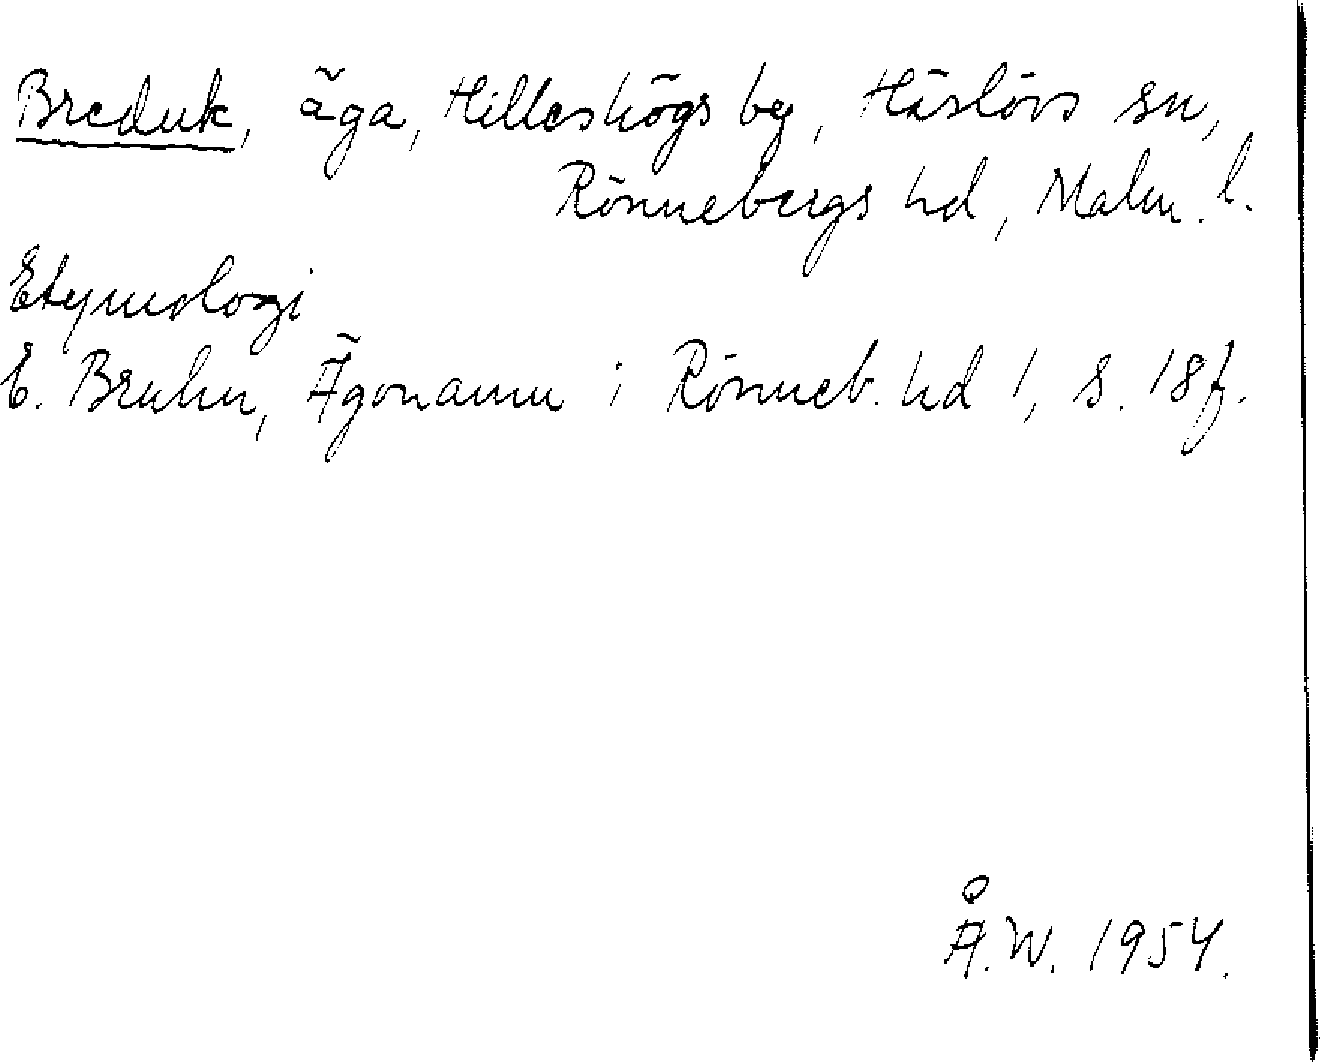 Breduk, äga, Hilleshögs by, Häslövs sn,
Rönnebergs hd, Malm. l.
Etymologi
E. Bruhn, Ägonamn i Rönneb. hd 1, s. 18f.
Å.W. 1954.